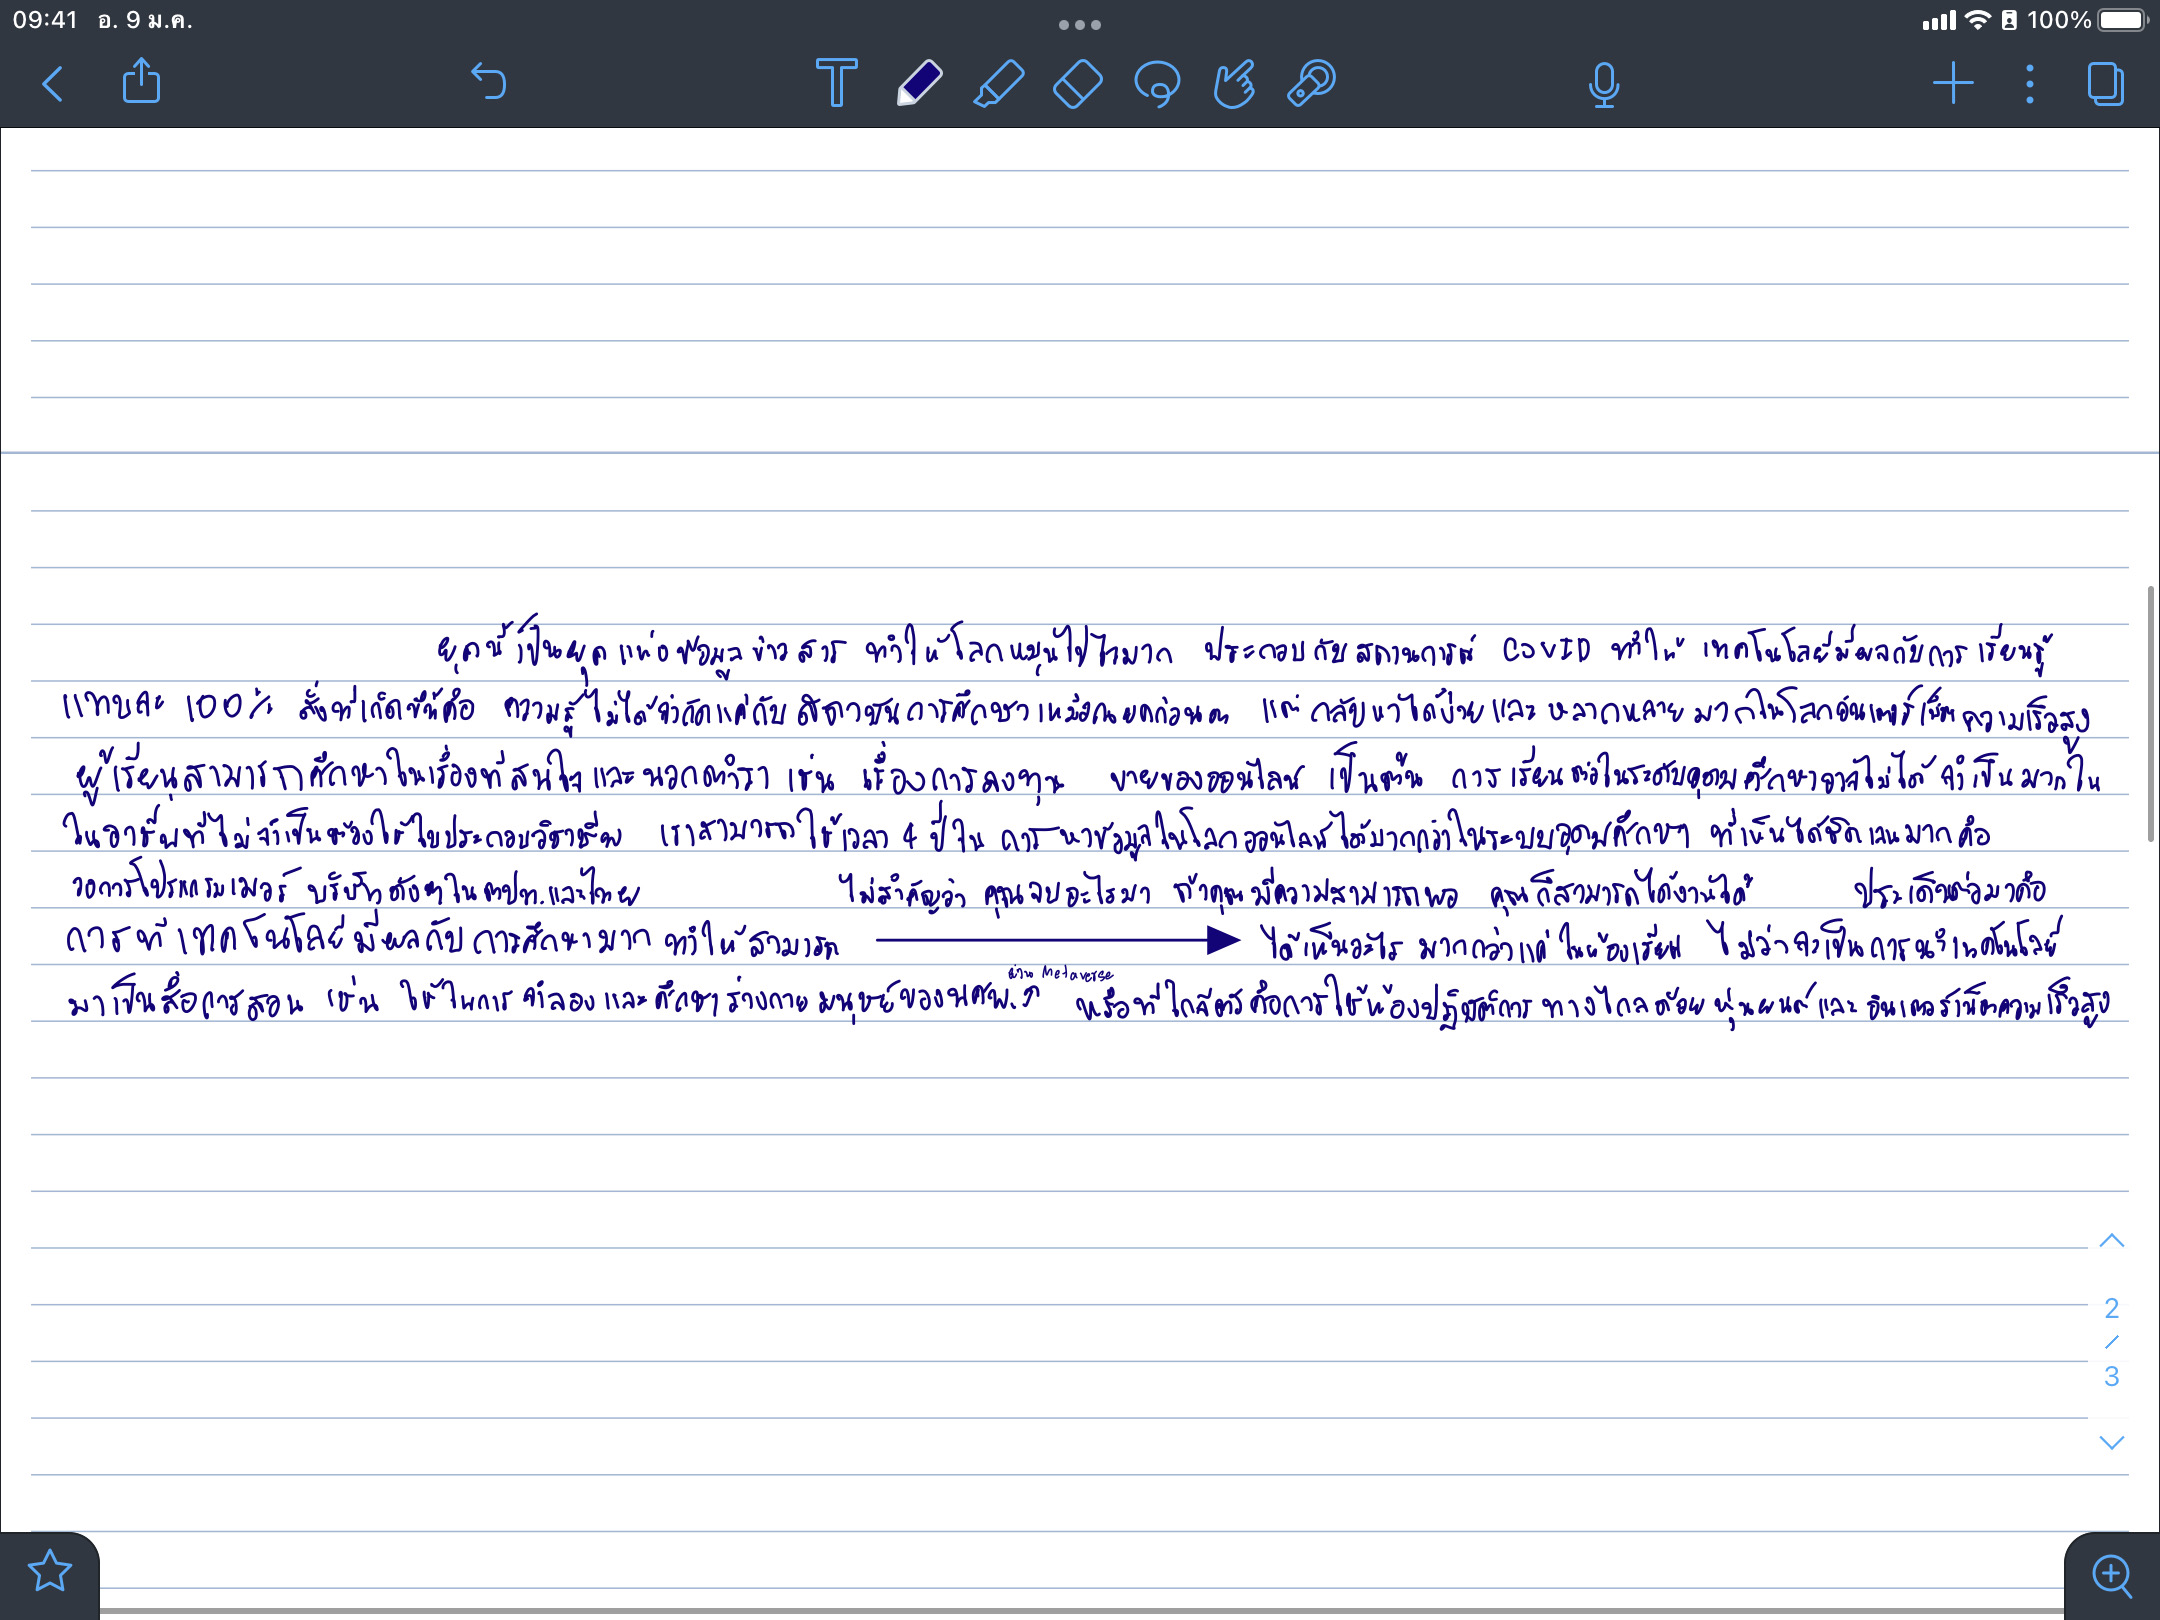 09:41 อ. 9 ม.ค. 100%
ยุคนี้เป็นยุคแห่งข้อมูลข่าวสาร ทำให้โลกหมุนไปไวมาก ประกอบกับสถานการณ์ COVID ทำให้ เทคโนโลยีมีผลกับการเรียนรู้
แทบละ 100% สิ่งที่เกิดขึ้นคือ ความรู้ไม่ได้จำกัดแค่กับสถาบันการศึกษาเหมือนยุคก่อนๆ แต่กลับหาได้ง่ายและหลากหลายมากในโลกอินเตอร์เน็ตความเร็วสูง
ผู้เรียนสามารถศึกษาในเรื่องที่สนใจและนอกตำรา เช่น เรื่องการลงทุน ขายของออนไลน์ เป็นต้น การเรียนต่อในระดับอุดมศึกษาอาจไม่ได้จำเป็นมากใน
ในอาชีพที่ไม่จำเป็นต้องใช้ใบประกอบวิชาชีพ เราสามารถใช้เวลา 4 ปีใน การหาข้อมูลในโลกออนไลน์ได้มากกว่าในระบบอุดมศึกษา ที่เห็นได้ชัดเลนมากคือ
วงการโปรแกรมเมอร์ บริษัทดังๆในตปท.และไทย ไม่สำคัญว่า คุณจบอะไรมา ถ้าคุณมีความสามารถพอ คุณก็สามารถได้งานได้ ประเด็นต่อมาคือ
การที่เทคโนโลยีมีผลกับการศึกษามาก ทำให้สามารถ ได้เห็นอะไร มากกว่าแค่ในห้องเรียน ไม่ว่าจะเป็นการนำเทคโนโลยี
ผ่าน Metaverse
มาเป็นสื่อการสอน เช่น ใช้ในการจำลองและศึกษาร่างกายมนุษย์ของนศพ. หรือที่ใกล้ตัวคือการใช้ห้องปฏิบัติการทางไกลด้วยหุ่นยนต์และอินเตอร์เน็ตความเร็วสูง
2
/
3